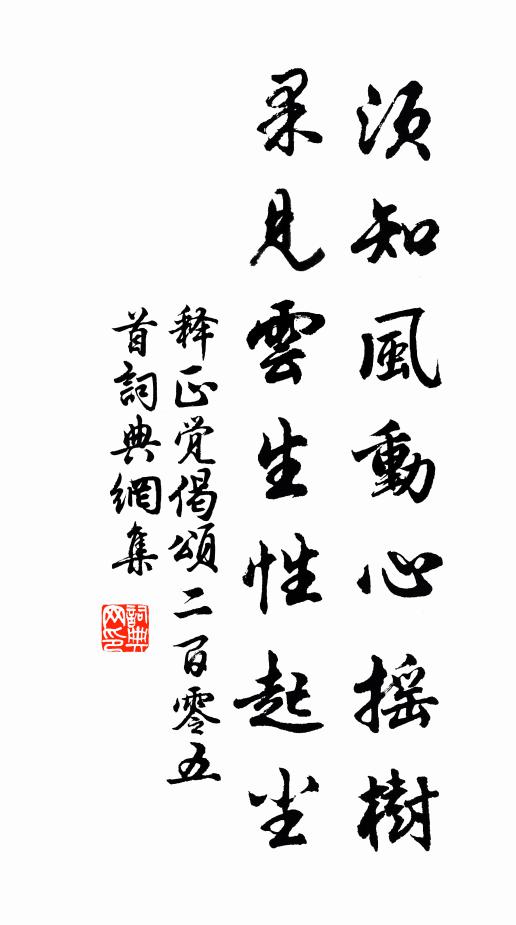 須知風動心摇樹
果見雲生性起尘
释正觉偈頌二百零五
首詞典網集
詞典网印